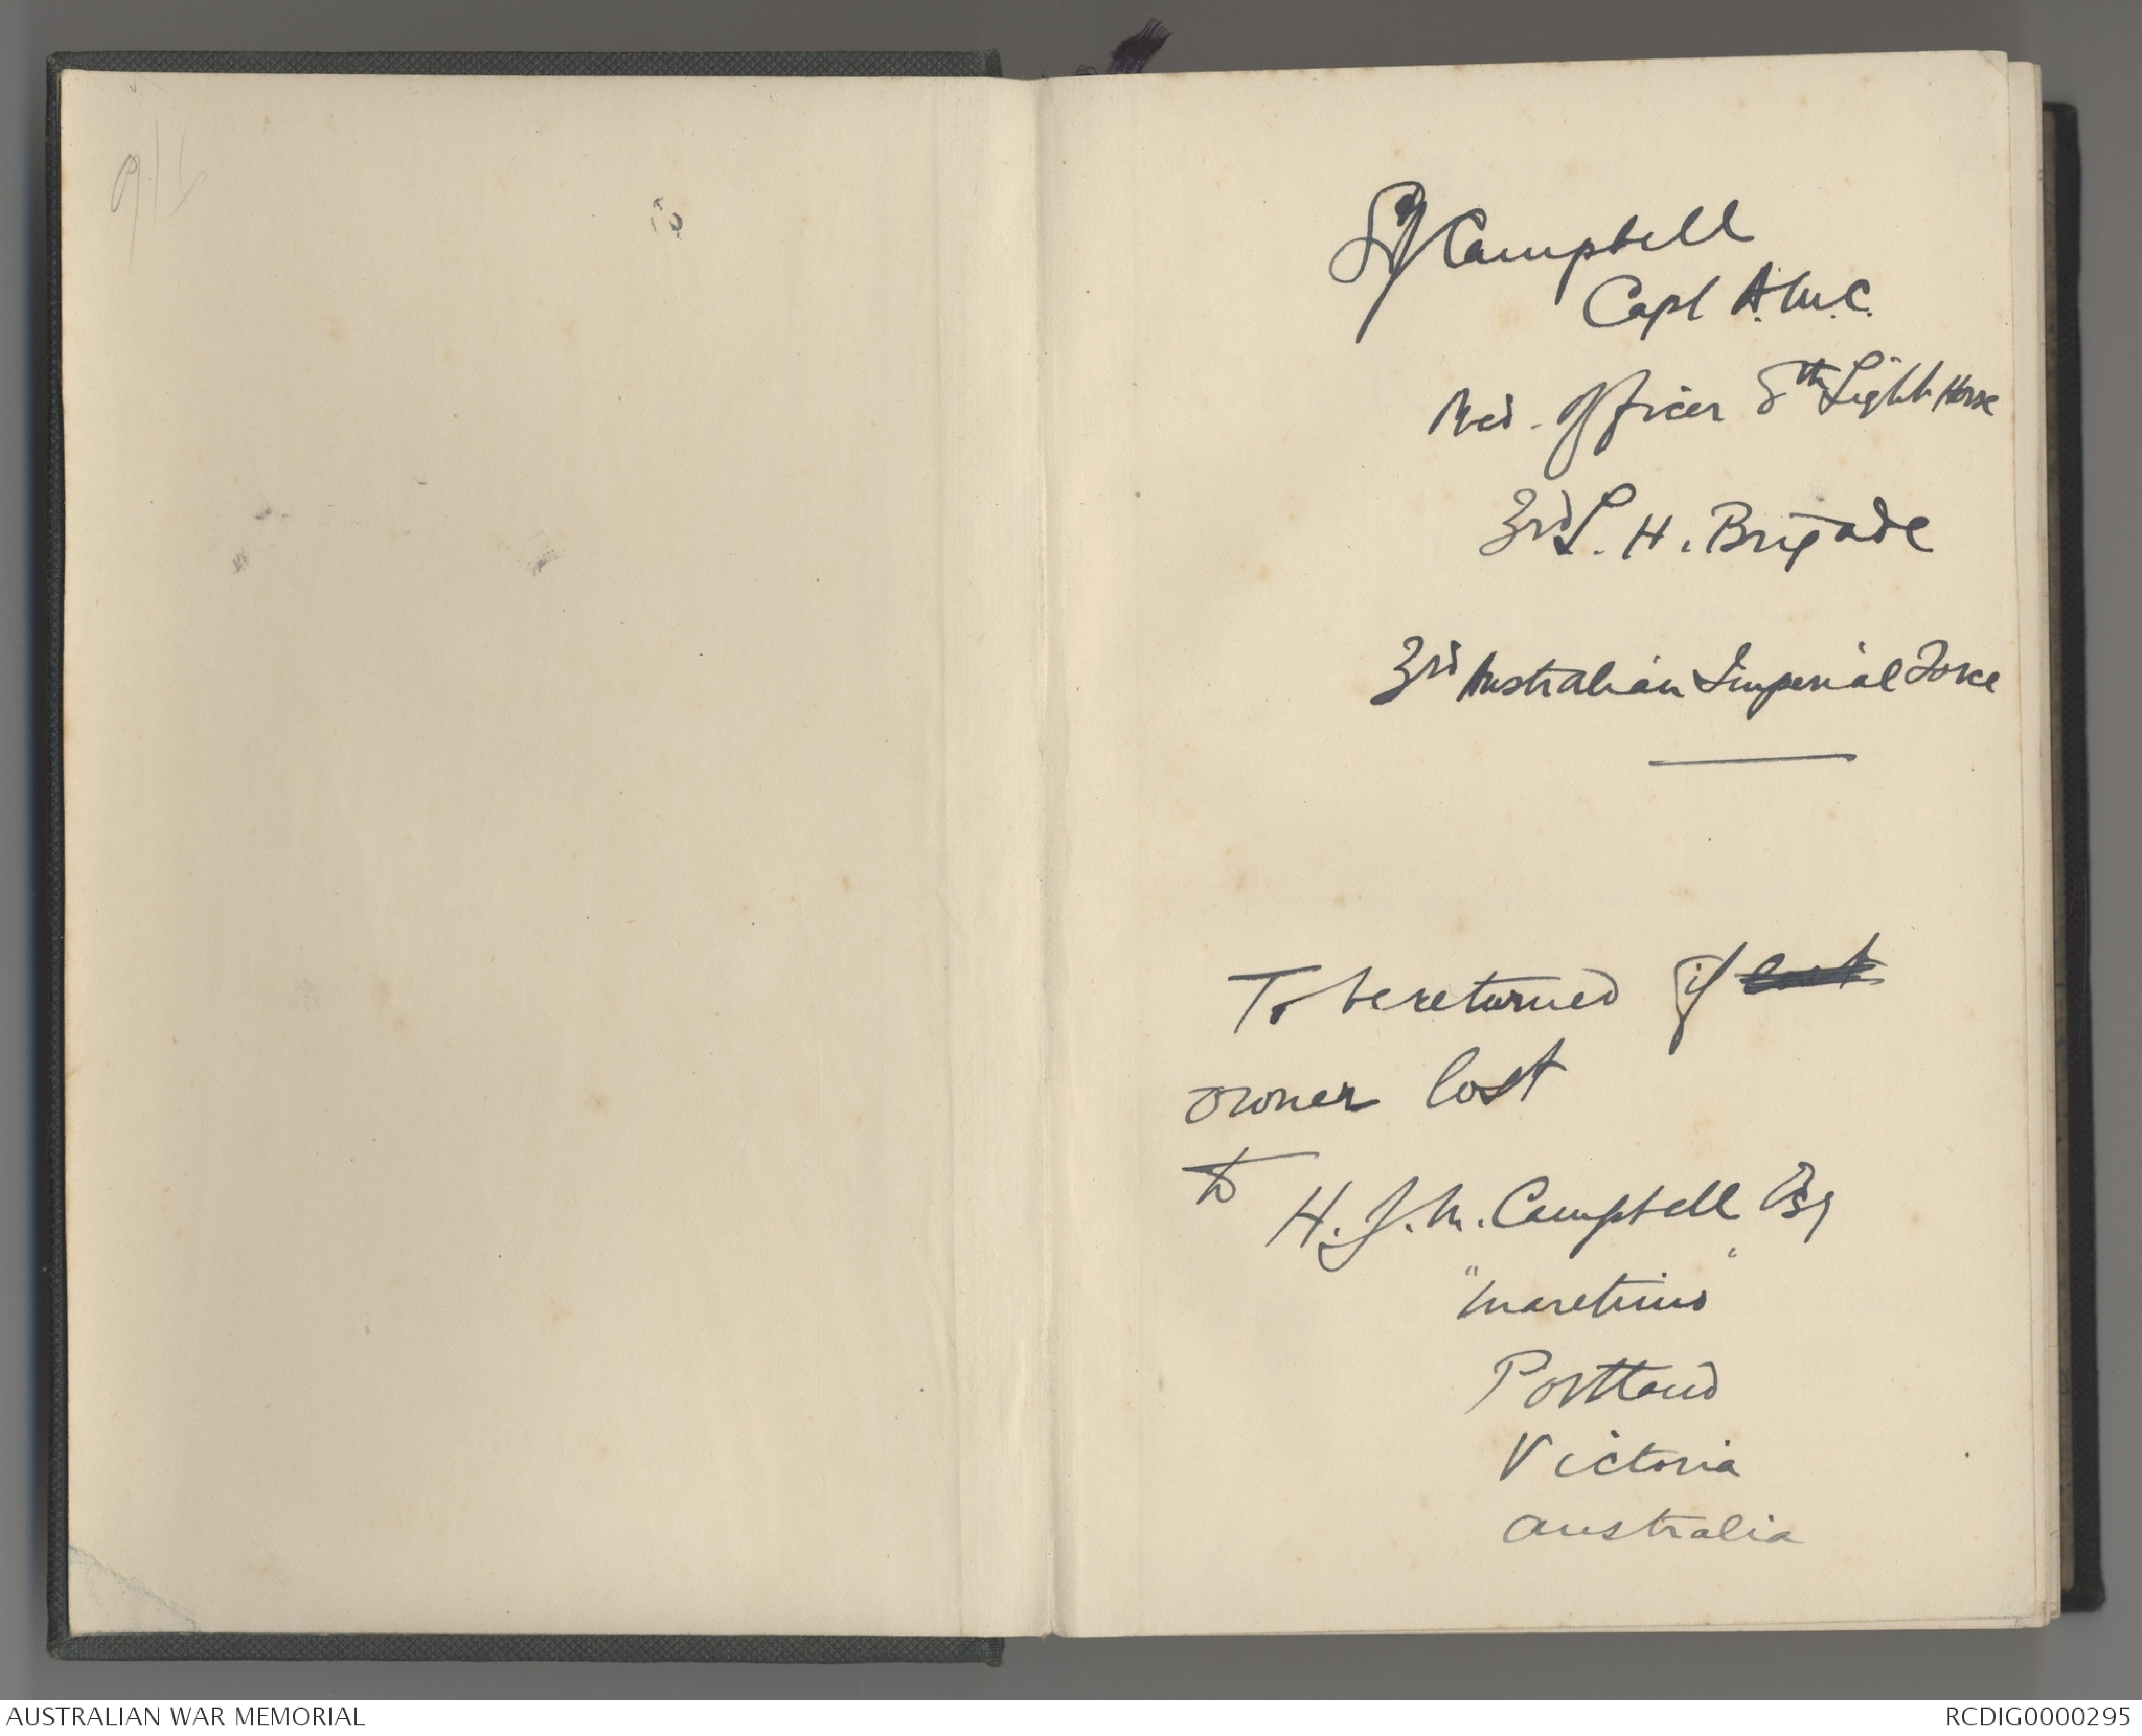 SJ Campbell
Capt A.M.C.
Med. Officer 8th Light Horse
3rd L. H. Brigade
3rd Australian Imperial Force
To be returned if lost
owner lost
to
H. J. M. Campbell Esq
"Maretimo"
Portland
Victoria
Australia
AUSTRALIAN WAR MEMORIAL
RCDIG0000295